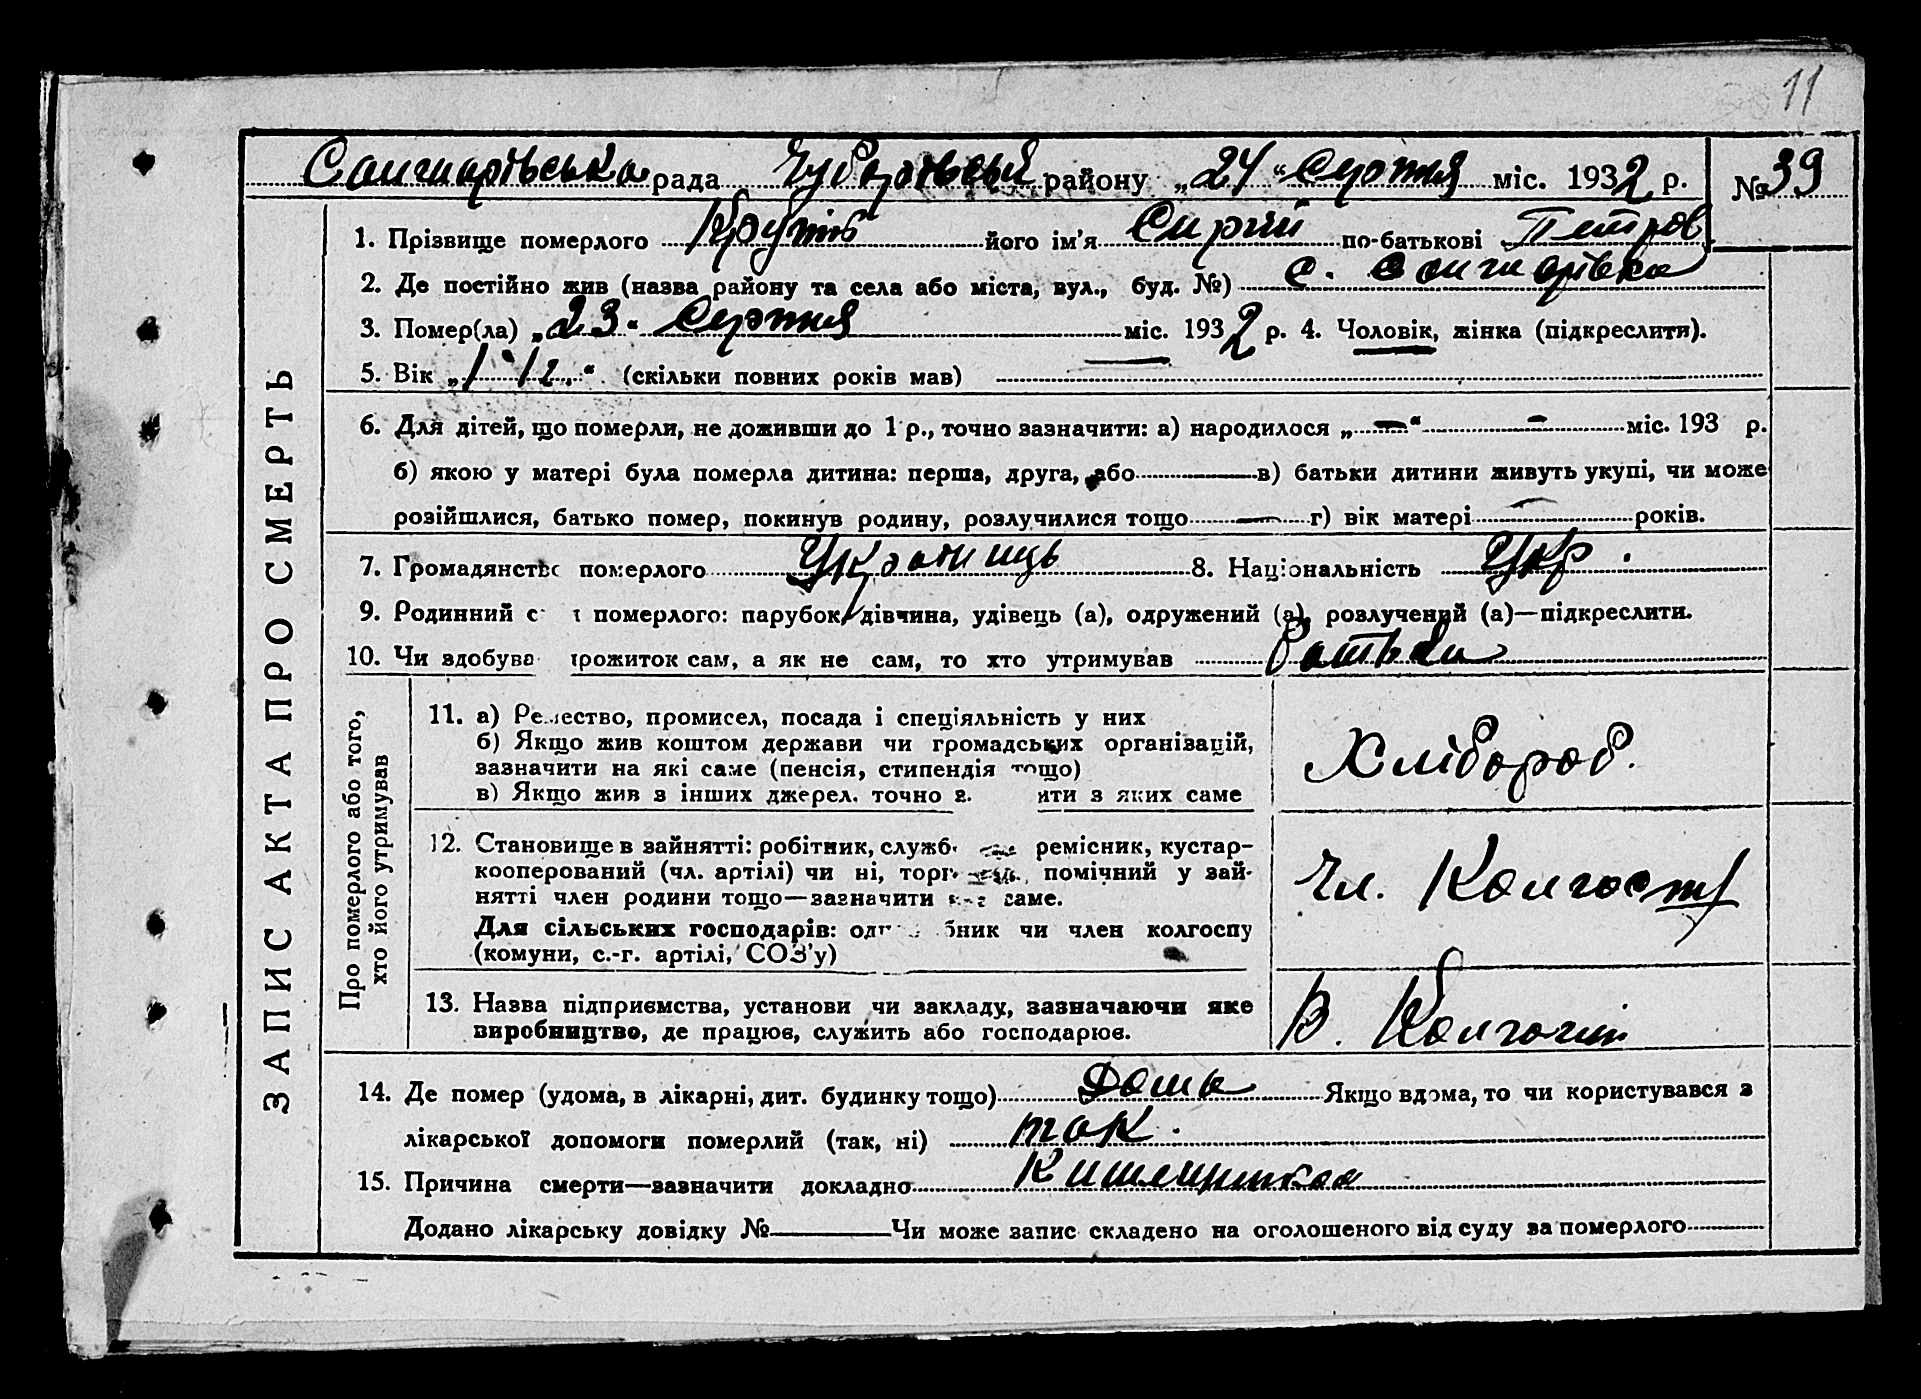 11
Сангнарівська рада Чубарівський району „24“ Серпня міс. 1932 р. № 39
1. Прізвище померлого Крутів його ім'я Сиргій по-батькові Петров
2. Де постійно жив (назва району та села або міста, вул., буд. №) с.
3. Помер(ла) „23“ Серпня міс. 1932 р. 4. Чоловік, жінка (підкреслити).
5. Вік „1 1/2.“ (скільки повних років мав)
6. Для дітей, що померли, не доживши до 1 р., точно зазначити: а) народилося „—“ - міс. 193 р.
б) якою у матері була померла дитина: перша, друга, або — в) батьки дитини живуть укупі, чи може
розійшлися, батько помер, покинув родину, розлучилися тощо — г) вік матері — років.
7. Громадянство померлого Українець 8. Національність Укр.
9. Родинний с т померлого: парубок, дівчина, удівець (а), одружений (а), розлучений (а)—підкреслити.
10. Чи здобува прожиток сам, а як не сам, то хто утримував Батьки
ЗАПИС АКТА ПРО СМЕРТЬ
Про померлого або того,
хто його утримував
11. а) Ремество, промисел, посада і спеціяльність у них
б) Якщо жив коштом держави чи громадських організацій,
зазначити на які саме (пенсія, стипендія тощо)
в) Якщо жив з інших джерел, точно з ити з яких саме
Хлібороб.
12. Становище в зайнятті: робітник, служб ремісник, кустар-
кооперований (чл. артілі) чи ні, торг помічний у зай-
нятті член родини тощо—зазначити саме.
Для сільських господарів: од бник чи член колгоспу
(комуни, с.-г. артілі, СОЗ'у)
Чл. Колгоспу
13. Назва підприємства, установи чи закладу, зазначаючи яке
виробництво, де працює, служить або господарює.
В. Колгоспі
14. Де помер (удома, в лікарні, дит. будинку тощо) Дома Якщо вдома, то чи користувався з
лікарської допомоги померлий (так, ні) так.
15. Причина смерти—зазначити докладно
Додано лікарську довідку № — Чи може запис складено на оголошеного від суду за померлого